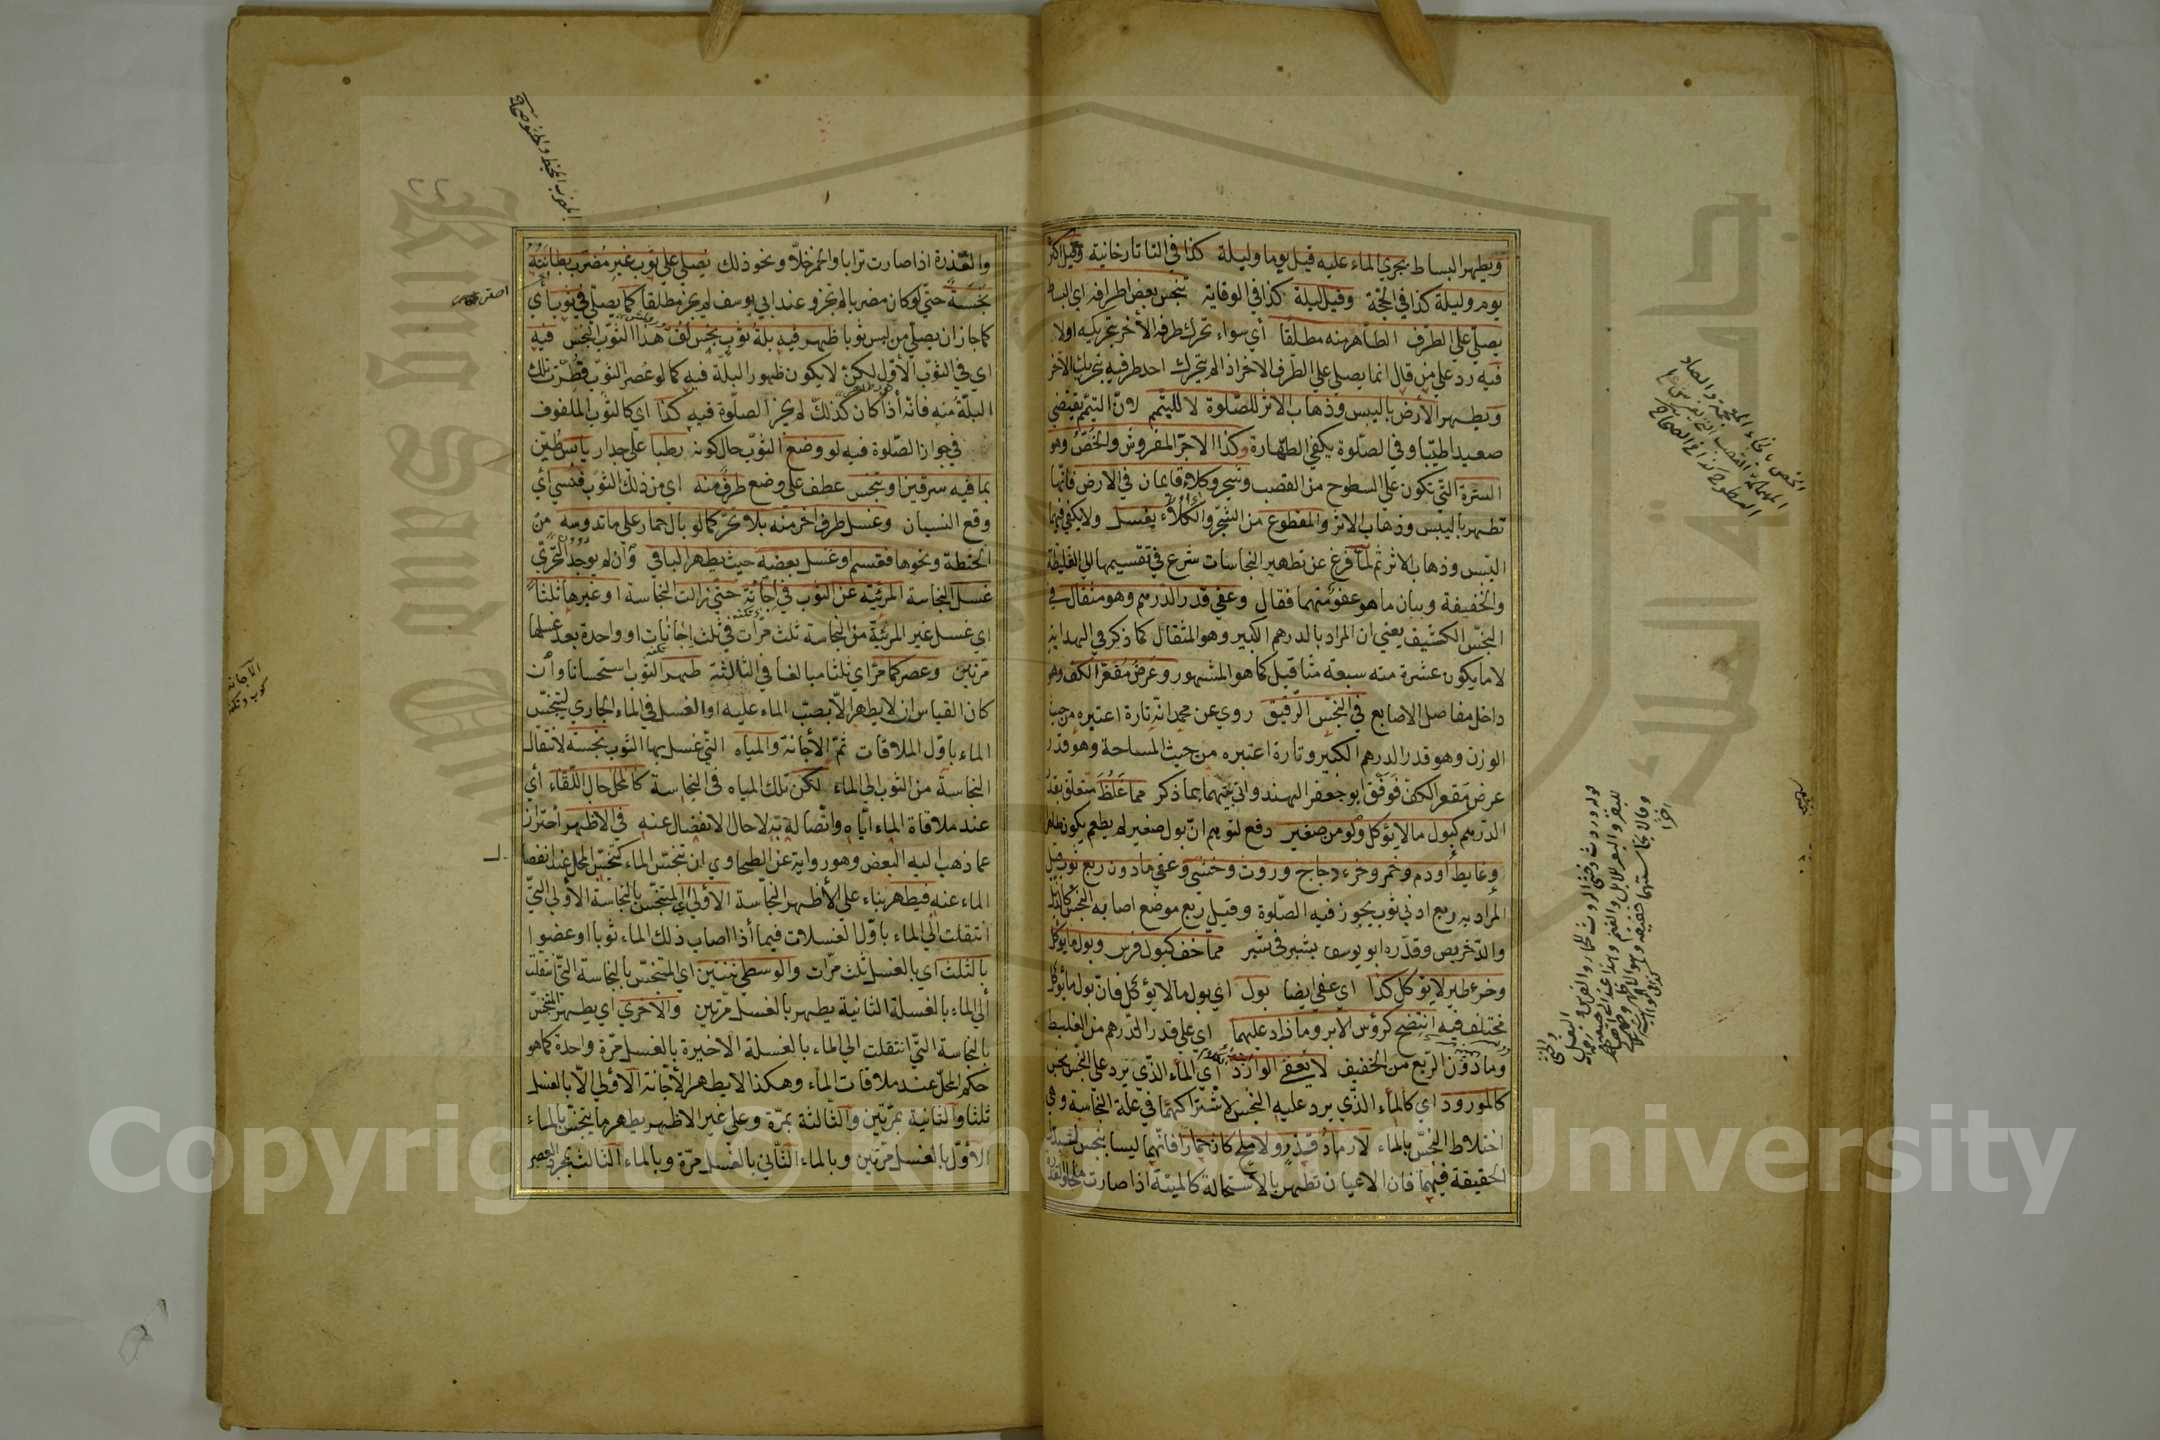 ويطهر البساط بجري الماء عليه قيل يوما وليلة كذا في التاتارخانية وقيل اكثر
يوم وليلة كذا في الحجة وقيل ليلة كذا في الوقاية تنجس بعض اطرافه اي البساط
يصلي على الطرف الطاهر منه مطلقا أي سواء تحرك طرفه الأخر بتحريكه اولا
فيه رد على من قال انما يصلي على الطرف الاخر اذا لم يتحرك احد طرفيه بتحريك الآخر
ويطهر الأرض باليبس وذهاب الاثر للصلوة لا للتيمم لان التيمم يقتضي
صعيدا طيبا وفي الصلوة يكفي الطهارة وكذا الاجر المفروش والخص وهو
السترة التي تكون على السطوح من القصب وشجر وكلاء قايمان في الارض فانها
تطهر باليبس وذهاب الاثر والمقطوع من الشجر والكلاء يغسل ولا يكفي فيهما
اليبس وذهاب الاثر ثم لما فرغ عن تطهير النجاسات شرع في تقسيمها الى الغليظة
والخفيفة وبيان ما هو عفو منهما فقال وعفي قدر الدرهم وهو مثقال في
النجس الكثيف يعني ان المراد بالدرهم الكبير وهو المثقال كما ذكر في الهداية
لا ما يكون عشرة منه سبعة مثاقيل كما هو المشهور وعرض مقعر الكف وهو
داخل مفاصل الاصابع في النجس الرقيق روي عن محمد انه تارة اعتبره من حيث
الوزن وهو قدر الدرهم الكبير وتارة اعتبره من حيث المساحة وهو قدر
عرض مقعر الكف فوفق ابو جعفر الهندواني بينهما بما ذكر مما غلظ متعلق بقدر
الدرهم كبول ما لا يؤكل ولو من صغير دفع لتوهم ان بول صغير لم يطعم يكون طاهرا
وغايط أو دم وخمر وخرء دجاج وروث وخثي وعفي ما دون ربع ثوب قيل
المراد به ربع ادنى ثوب يجوز فيه الصلوة وقيل ربع موضع اصابه النجس كالذيل
والدخريص وقدره ابو يوسف بشبر في شبر مما خف كبول فرس وبول ما يؤكل
وخرء طير لا يؤكل كذا اي عفي ايضا بول اي بول ما لا يؤكل فان بول ما يؤكل
مختلف فيه انتضح كرؤس الابر وما زاد عليهما اي على قدر الدرهم من الغليظ
وما دون الربع من الخفيف لا يعفى الوارد أي الماء الذي يرد على النجس نجس
كالمورود اي كالماء الذي يرد عليه النجس لاشتراكهما في علة النجاسة وهي
اختلاط النجس بالماء لا رماد قذر ولا ملح كان حمارا فانهما ليسا بنجس لتبدل
الحقيقة فيهما فان الاعيان تطهر بالاستحالة كالميتة اذا صارت ملحا
والعذرة اذا صارت ترابا والخمر خلا ونحو ذلك يصلي على ثوب غير مضرب بطانته
نجسة حتى لو كان مضربا لم تجز وعند ابي يوسف لم يجز مطلقا كما يصلي في ثوب أي
كما جاز ان يصلي من لبس ثوبا ظهر فيه بلة ثوب نجس لف هذا الثوب النجس فيه
اي في الثوب الأول لكن لا يكون ظهور البلة فيه كما لو عصر الثوب قطرت تلك
البلة منه فانه اذا كان كذلك لم يجز الصلوة فيه كذا اي كالثوب الملفوف
في جواز الصلوة فيه لو وضع الثوب حال كونه رطبا على جدار يابس طين
بما فيه سرقين وتنجس عطف على وضع طرف منه اي من ذلك الثوب فنسي أي
وقع النسيان وغسل طرف اخر منه بلا تحر كما لو بال حمار على ما تدوسه من
الحنطة ونحوها فقسم او غسل بعضه حيث يطهر الباقي وان لم يوجد التحري
غسل النجاسة المرئية عن الثوب في اجانة حتى زالت النجاسة او غيرها ثلثا
اي غسل غير المرئية من النجاسة ثلث مرات في ثلث اجانيات او واحدة بعد غسلها
مرتين وعصر كما مر اي ثلثا مبالغا في الثالثة طهر الثوب استحسانا وان
كان القياس ان لا يطهر الا بصب الماء عليه او الغسل في الماء الجاري لتنجس
الماء باول الملاقات ثم الأجانة والمياه التي غسل بها الثوب نجسة لانتقال
النجاسة من الثوب الى الماء لكن تلك المياه في النجاسة كالمحل حال اللقاء أي
عند ملاقاة الماء اياه واتصاله به لا حال الانفصال عنه في الاظهر احترازا
عما ذهب اليه البعض وهو رواية عن الطحاوي ان تنجس الماء كتنجس المحل عند انفصال
الماء عنه فيطهر بناء على الأظهر النجاسة الأولى اي المتنجس بالنجاسة الأولى التي
انتقلت الى الماء باول الغسلات فيما أذا اصاب ذلك الماء ثوبا او عضوا
بالثلث اي بالغسل ثلث مرات والوسطى ثنتين اي المتنجس بالنجاسة التي انتقلت
الى الماء بالغسلة الثانية يطهر بالغسل مرتين والاخرى اي يطهر المتنجس
بالنجاسة التي انتقلت الى الماء بالغسلة الاخيرة بالغسل مرة واحدة كما هو
حكم المحل عند ملاقات الماء وهكذا لا يطهر الأجانة الأولى الا بالغسل
ثلثا والثانية بمرتين والثالثة بمرة وعلى غير الاظهر يطهر ما يتنجس بالماء
الأول بالغسل مرتين وبالماء الثاني بالغسل مرة وبالماء الثالثة بمجرد العصر
Copyright © King Saud University